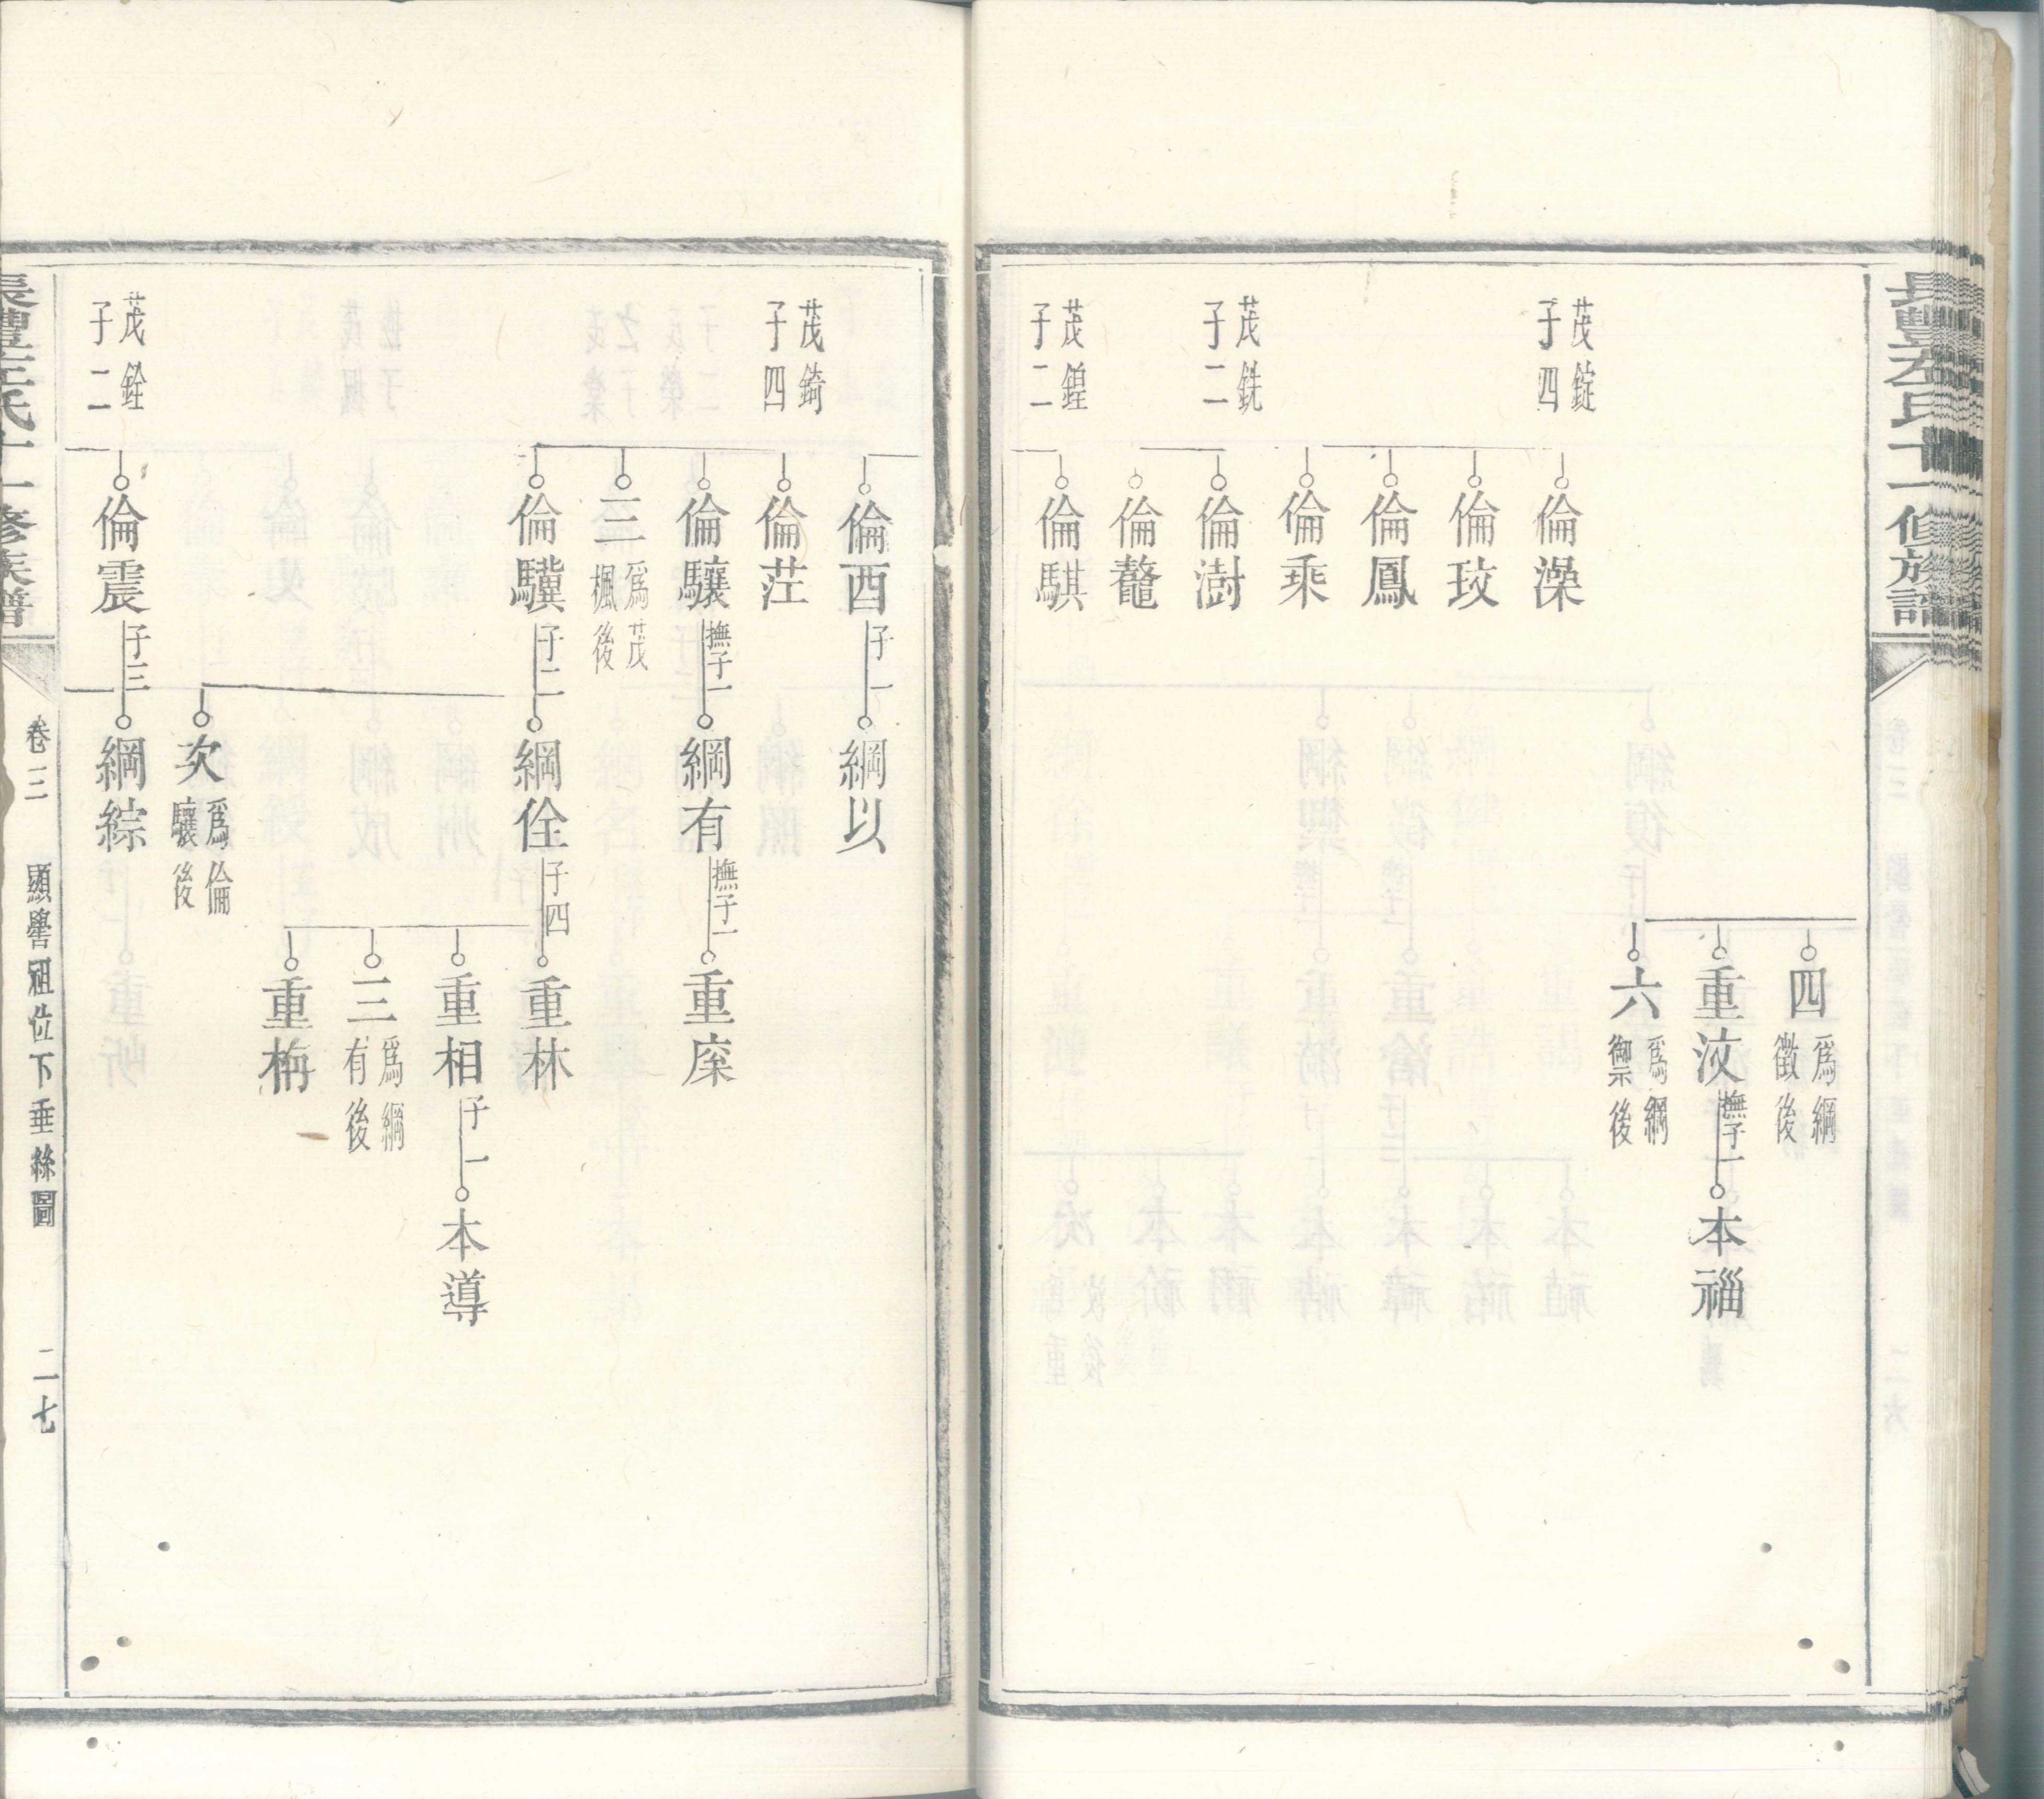 氏十一修族譜
四
爲綱
徵後
重洨
撫子一
本福
六
爲綱
禦後
茂錠
子四
倫澡
倫玟
倫鳳
倫乘
茂銑
子二
倫澍
倫鼇
茂鍠
子二
倫騏
倫酉
子一
綱以
茂錡
子四
倫茳
倫驤
撫子一
綱有
撫子一
重庺
三
爲茂
楓後
倫驥
子二
綱佺
子四
重林
重相
子一
本導
三
爲綱
有後
重栴
次
爲倫
驤後
茂銓
子二
倫震
子三
綱綜
氏十一修族譜
卷三
顯嚳祖位下垂絲圖
二七